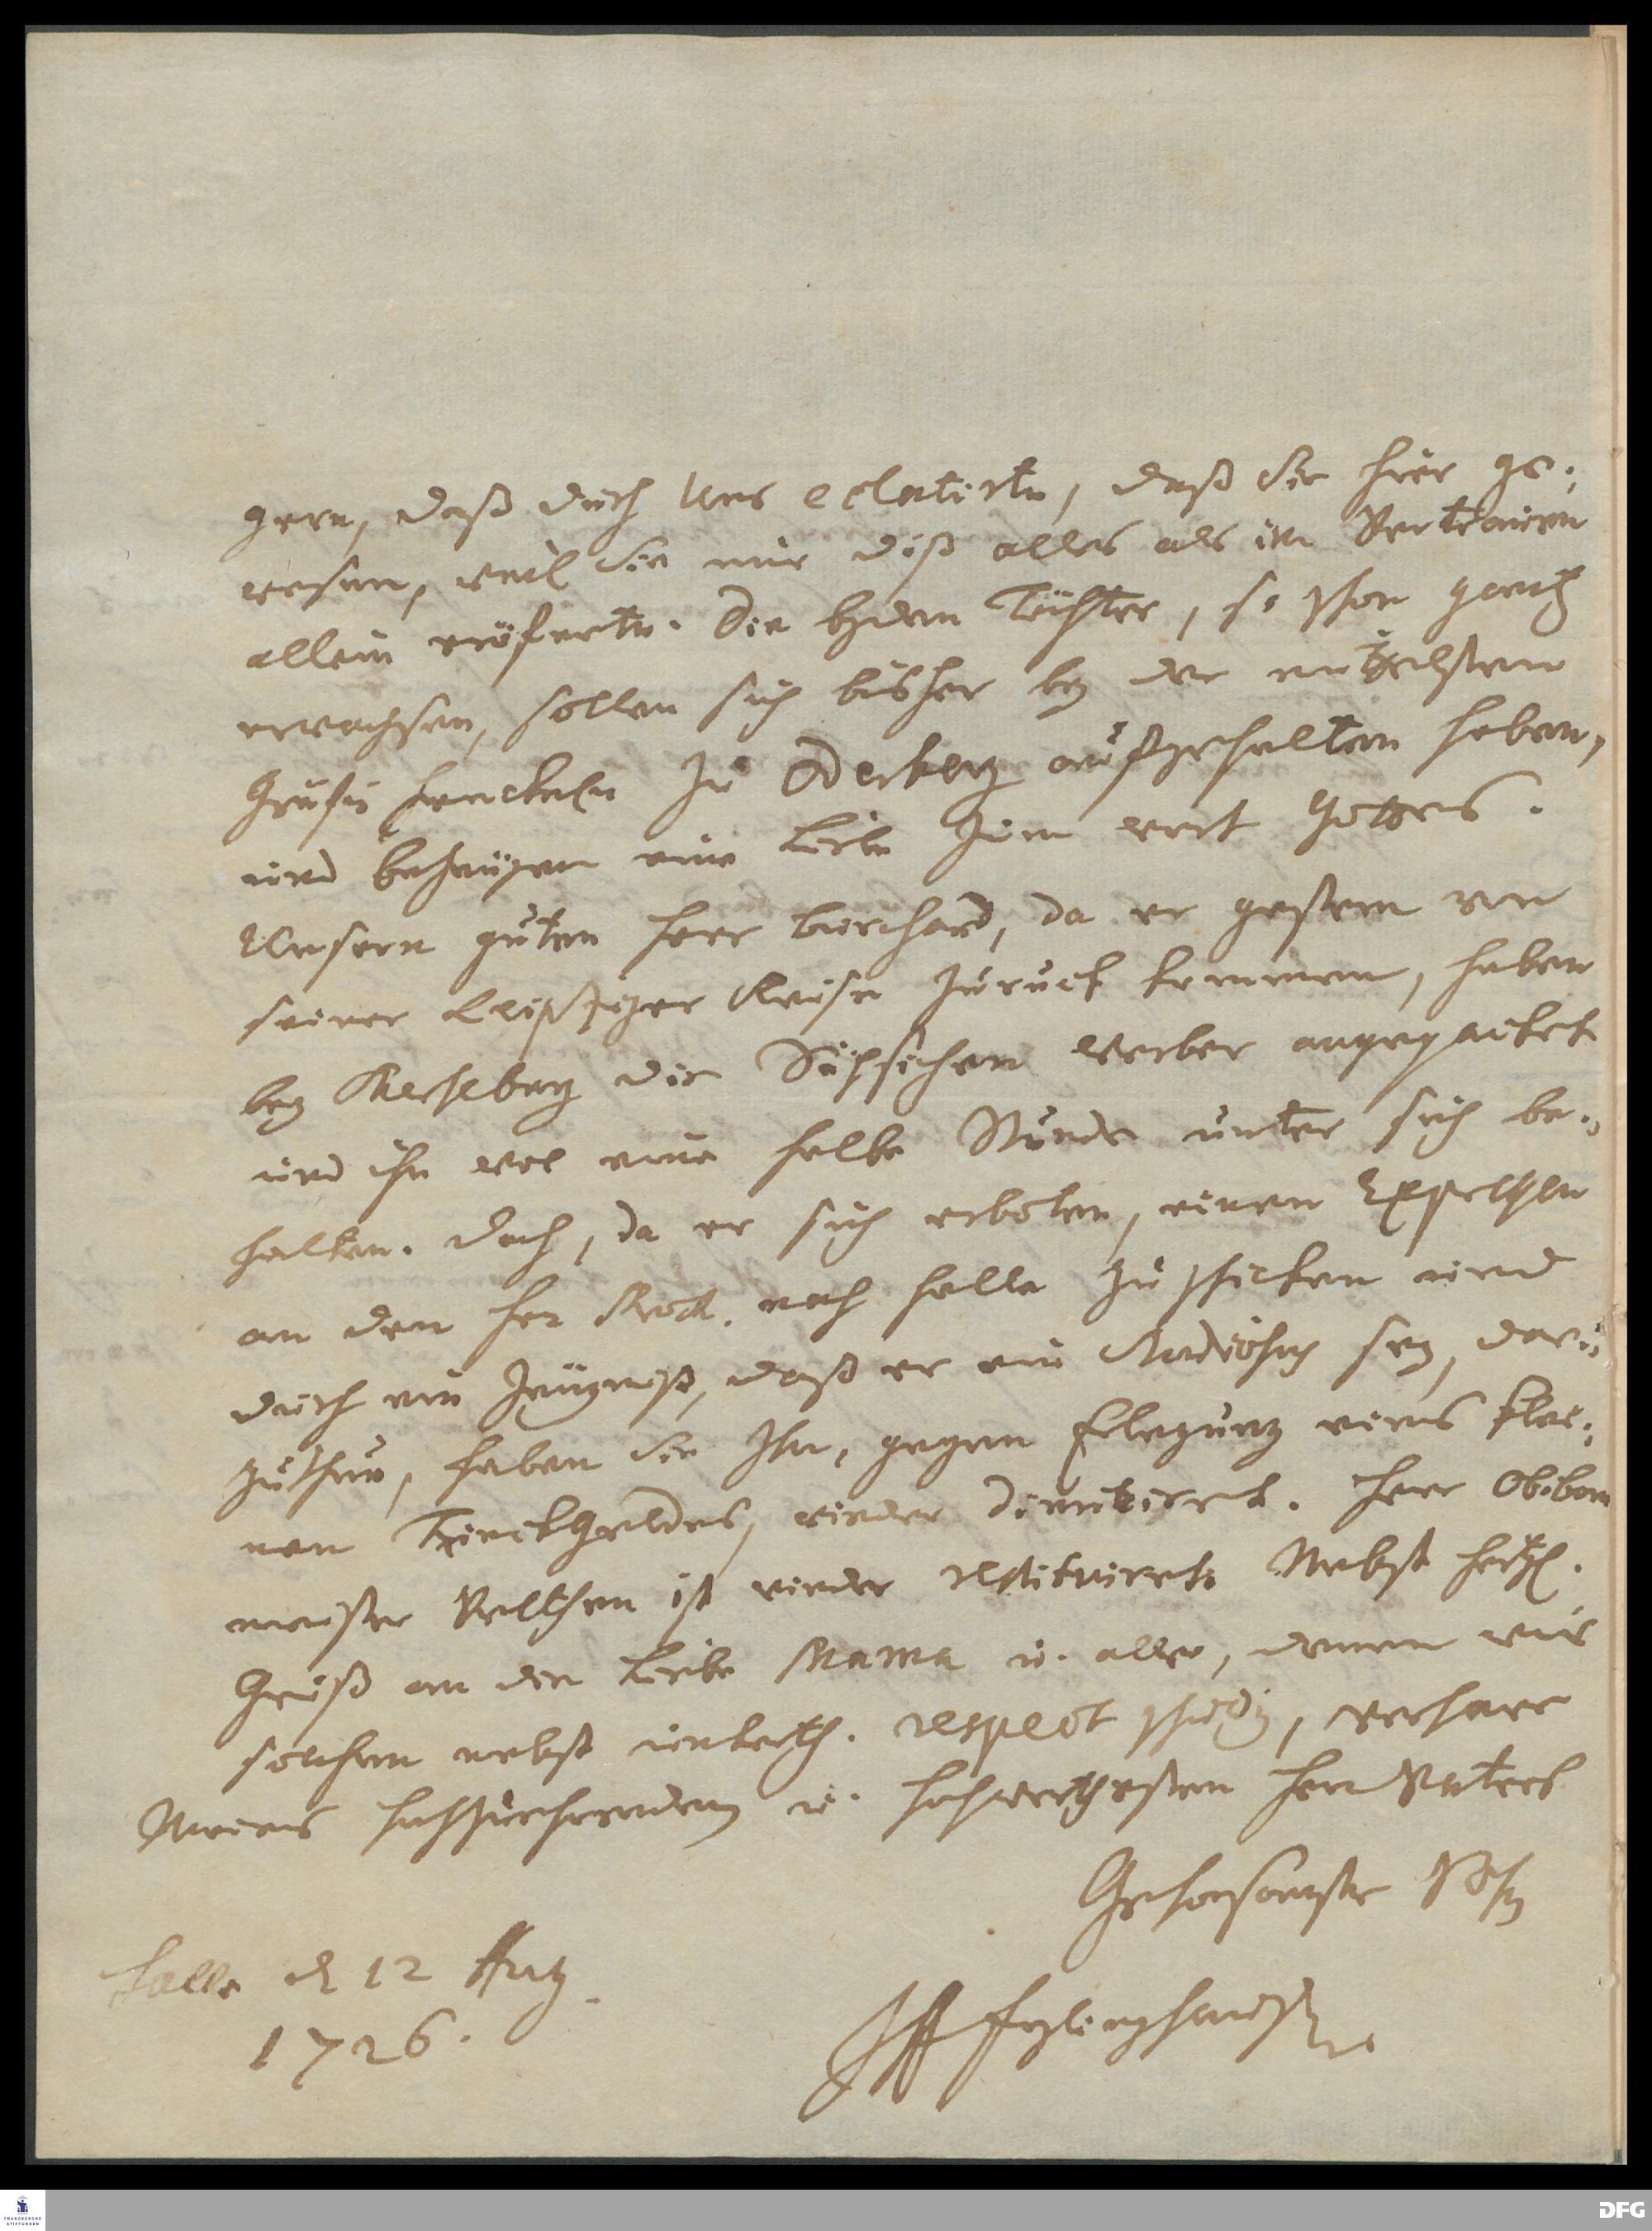 gern, daß durch Uns eclatirte, daß Sie hier ge-
wesen, weil Sie mir diß alles als im Vertrauen
allein eröfnete. Die beiden Töchter, so schon gantz
erwachsen, sollen sich bisher bey der
Gräfin Henckeln zu Oderberg aufgehalten haben,
und bezeugen eine Liebe zum wort Gottes.
Unsern guten Herr Burchard, da er gestern von
seiner Leipziger Reise zurück kommen, haben
bey Merseburg die Sächsischen Werber angepacket
und ihn wol eine halbe Stunde unter sich be-
halten. Doch, da er sich erboten, einen Expressen
an den Hrn nach Halle zu schicken und
durch ein Zeugniß, daß er ein Studiosus sey, dar-
zuthun, haben Sie Ihn, gegen Erlegung eines klei-
nen Trinckgeldes, wieder dimittiret. Herr Obibon
meister Vellthen ist wieder restituiret. Nebst hertzl.
Gruß an die Liebe Mama u. alle, denen wir
solchen nebst unterth. respect schuldig, verharre
Meines hochzuehrenden u. hochwerthesten Herrn Vaters
Gehorsamster Sohn
Halle d 12 Aug.
1726.
JA Freylinghausen
FRANCKESCHE STIFTUNGEN
DFG